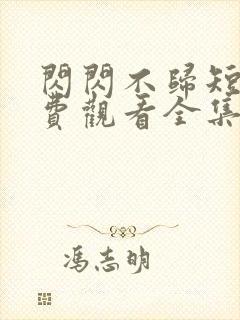 閃閃不歸短
費觀看全集
馮志明